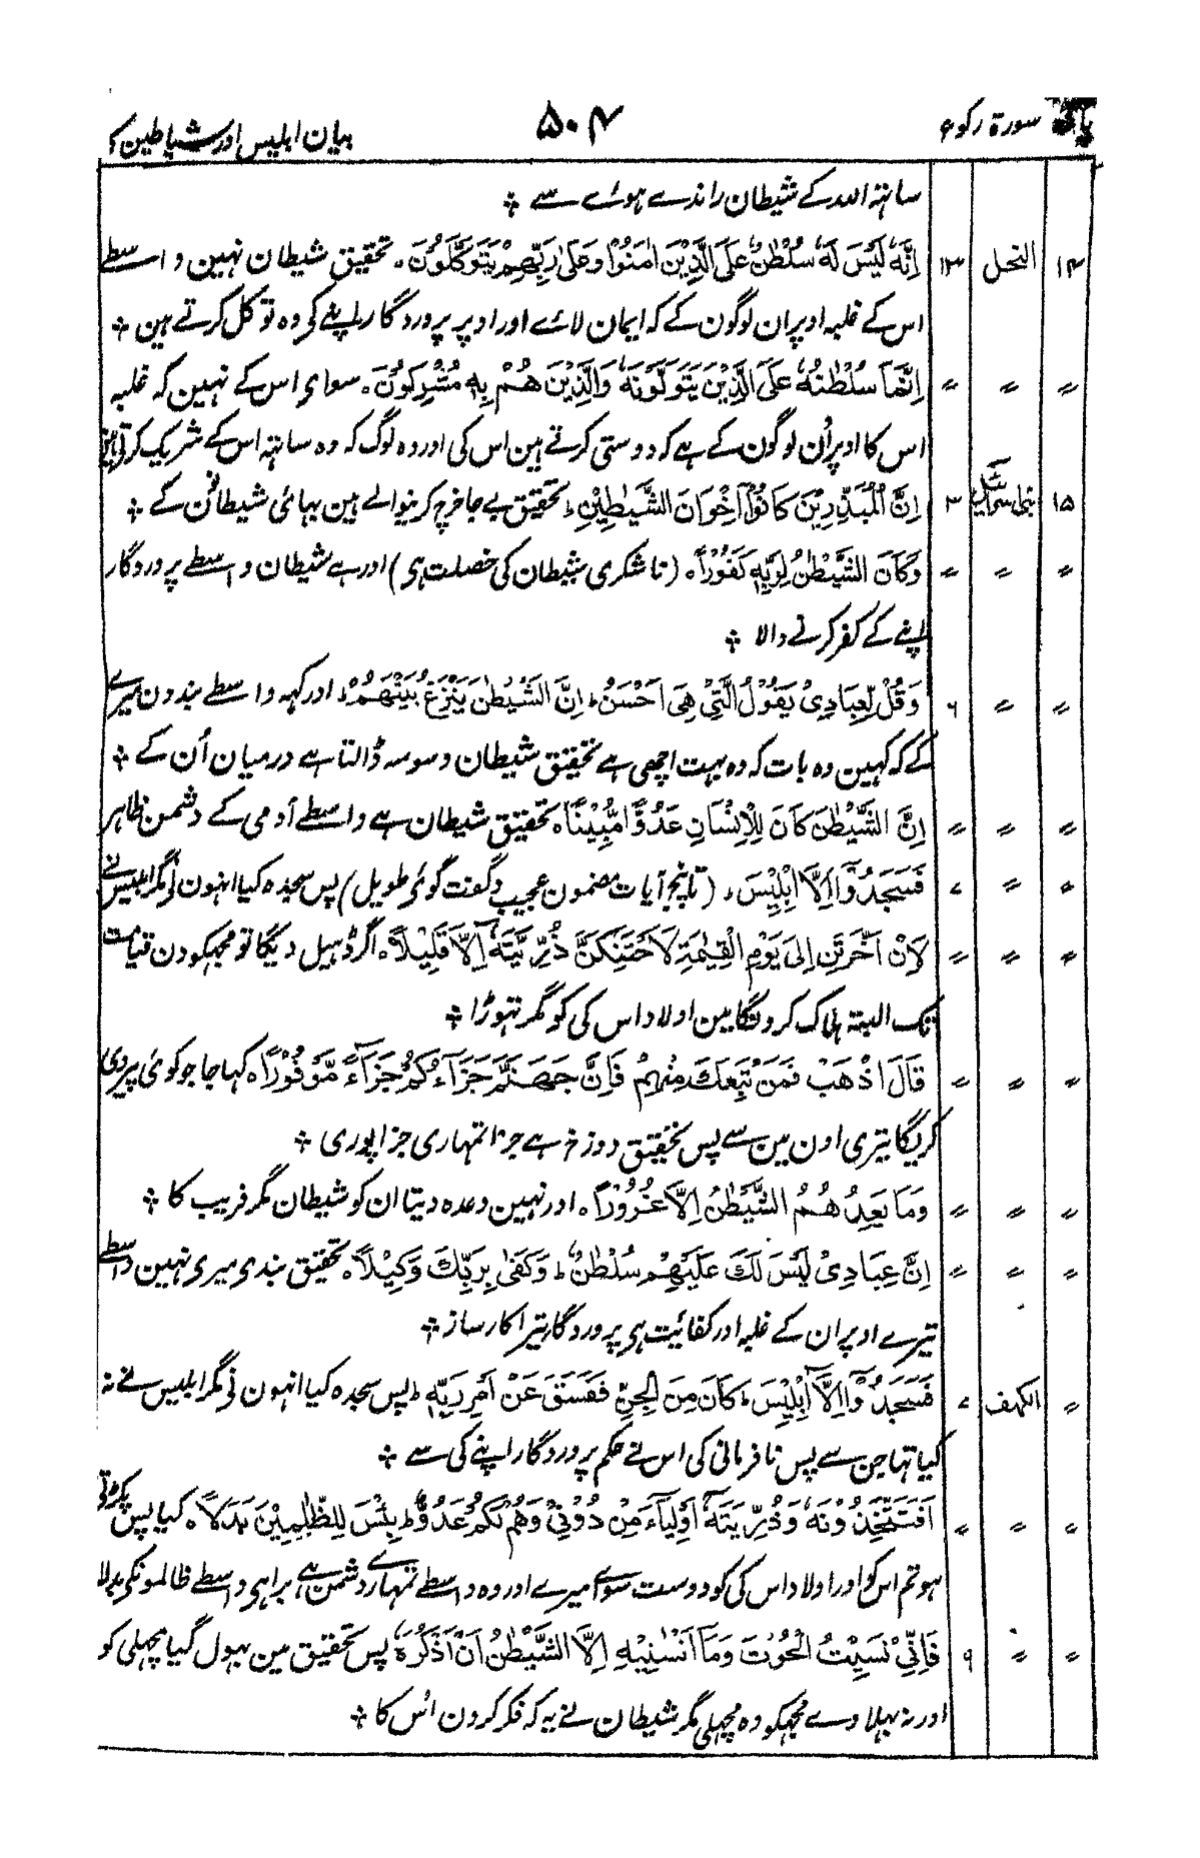 پارہ سورۃ رکوع ۵۰۴ بیان ابلیس اور شیاطین کا
ساتہہ اللہ کے شیطان راندے ہوئے سے ؞
۱۴ النحل ۱۳ اِنَّهٗ لَيْسَ لَهٗ سُلْطٰنٌ عَلَى الَّذِيْنَ اٰمَنُوْا وَعَلٰى رَبِّهِمْ يَتَوَكَّلُوْنَ۔ تحقیق شیطان نہین واسطے
اس کے غلبہ اوپر ان لوگون کے کہ ایمان لائے اور اوپر پروردگار اپنے کی وہ توکل کرتے ہین ؞
〃 〃 〃 اِنَّمَا سُلْطٰنُهٗ عَلَى الَّذِيْنَ يَتَوَلَّوْنَهٗ وَالَّذِيْنَ هُمْ بِهٖ مُشْرِكُوْنَ۔ سوای اس کے نہین کہ غلبہ
اس کا اوپر اُن لوگون کے ہے کہ دوستی کرتے ہین اس کی اور وہ لوگ کہ وہ ساتہہ اس کے شریک کرتے ہین
۱۵ بنی اسرائیل ۳ اِنَّ الْمُبَذِّرِيْنَ كَانُوْٓا اِخْوَانَ الشَّيٰطِيْنِ ؕ تحقیق بے جا خرچ کرنیوالے ہین بہائی شیطانون کے ؞
〃 〃 〃 وَكَانَ الشَّيْطٰنُ لِرَبِّهٖ كَفُوْرًا۔ (ناشکری شیطان کی خصلت ہی) اور ہے شیطان واسطے پروردگار
اپنے کے کفر کرنے والا ؞
〃 〃 ۶ وَقُلْ لِّعِبَادِيْ يَقُوْلُ الَّتِيْ هِيَ اَحْسَنُ ؕ اِنَّ الشَّيْطٰنَ يَنْزَغُ بَيْنَهُمْ ؕ اور کہہ واسطے بندون میرے
کے کہ کہین وہ بات کہ وہ بہت اچھی ہے تحقیق شیطان وسوسہ ڈالتا ہے درمیان اُن کے ؞
〃 〃 〃 اِنَّ الشَّيْطٰنَ كَانَ لِلْاِنْسَانِ عَدُوًّا مُّبِيْنًا۔ تحقیق شیطان ہے واسطے آدمی کے دشمن ظاہر
〃 〃 ۷ فَسَجَدُوْٓا اِلَّآ اِبْلِيْسَ ؕ (تا پنج آیات مضمون عجیب و گفت گوئی طویل) پس سجدہ کیا انہون نی مگر ابلیس نے
〃 〃 〃 لَاِنْ اَخَّرْتَنِ اِلٰى يَوْمِ الْقِيٰمَةِ لَاَحْتَنِكَنَّ ذُرِّيَّتَهٗٓ اِلَّا قَلِيْلًا۔ اگر ڈہیل دیگا تو مجہکو دن قیامت
تک البتہ ہلاک کرونگا مین اولاد اس کی کو مگر تہوڑا ؞
〃 〃 〃 قَالَ اذْهَبْ فَمَنْ تَبِعَكَ مِنْهُمْ فَاِنَّ جَهَنَّمَ جَزَآؤُكُمْ جَزَآءً مَّوْفُوْرًا۔ کہا جا جو کوئی پیروی
کریگا تیری اون مین سے پس تحقیق دوزخ ہے جزا تمہاری جزا پوری ؞
〃 〃 〃 وَمَا يَعِدُهُمُ الشَّيْطٰنُ اِلَّا غُرُوْرًا۔ اور نہین وعدہ دیتا ان کو شیطان مگر فریب کا ؞
〃 〃 〃 اِنَّ عِبَادِيْ لَيْسَ لَكَ عَلَيْهِمْ سُلْطٰنٌ ؕ وَكَفٰى بِرَبِّكَ وَكِيْلًا۔ تحقیق بندی میری نہین واسطے
تیرے اوپر ان کے غلبہ اور کفائیت ہی پروردگار تیرا کارساز ؞
〃 الکہف ۷ فَسَجَدُوْٓا اِلَّآ اِبْلِيْسَ ؕ كَانَ مِنَ الْجِنِّ فَفَسَقَ عَنْ اَمْرِ رَبِّهٖ ؕ پس سجدہ کیا انہون نی مگر ابلیس نے نہ
کیا تہا جن سے پس نافرمانی کی اس نے حکم پروردگار اپنے کی سے ؞
〃 〃 〃 اَفَتَتَّخِذُوْنَهٗ وَذُرِّيَّتَهٗٓ اَوْلِيَآءَ مِنْ دُوْنِيْ وَهُمْ لَكُمْ عَدُوٌّ ؕ بِئْسَ لِلظّٰلِمِيْنَ بَدَلًا۔ کیا پس پکڑتی
ہو تم اس کو اور اولاد اس کی کو دوست سوای میرے اور وہ واسطے تمہارے دشمن ہے براہی واسطے ظالمونکی بدلا
〃 〃 ۹ فَاِنِّيْ نَسِيْتُ الْحُوْتَ وَمَآ اَنْسٰنِيْهِ اِلَّا الشَّيْطٰنُ اَنْ اَذْكُرَهٗ ۚ پس تحقیق مین بہول گیا مچہلی کو
اور نہ بہلا دے مجہکو وہ مچہلی مگر شیطان نے یہ کہ فکر کرون اُس کا ؞